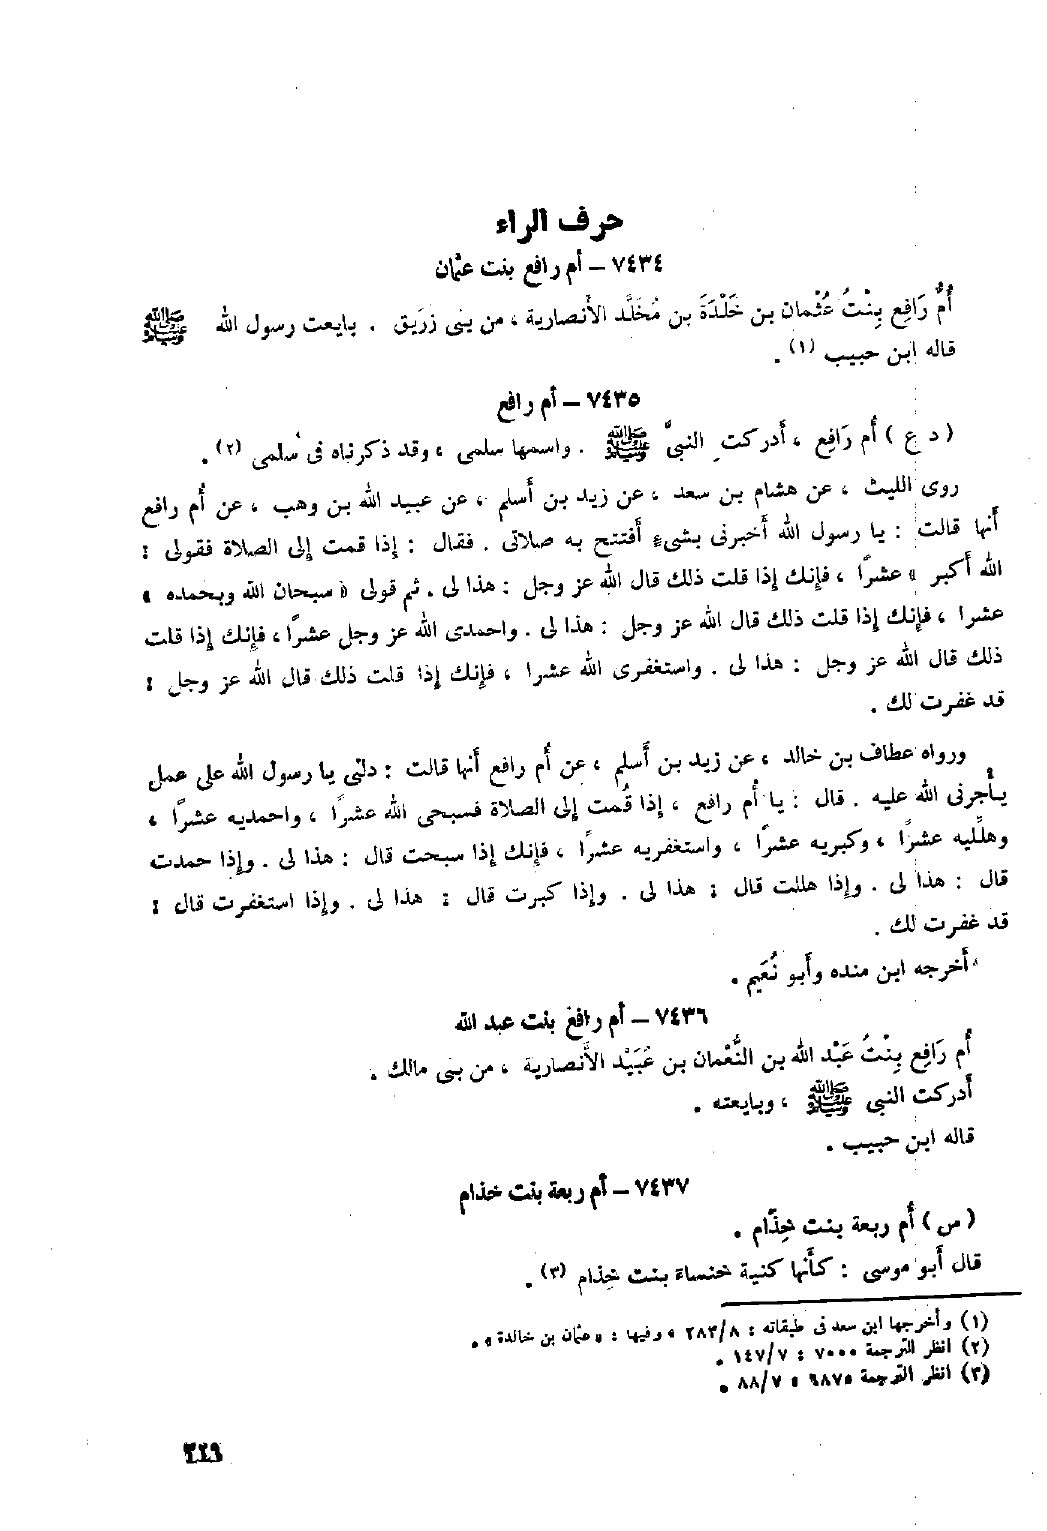 حرف الراء
٧٤٣٤ – أم رافع بنت عثمان
أُمُّ رَافِع بِنْتُ عُثْمان بن خَلْدَةَ بن مُخَلَّد الأنصارية ، من بنى زرَيق . بايعت رسول الله ﷺ
قاله ابن حبيب (١) .
٧٤٣٥ – أم رافع
( د ع ) أُم رَافِع ، أَدركت النبىَّ ﷺ . واسمها سلمى ، وقد ذكرناه فى سُلمى (٢) .
روى الليث ، عن هشام بن سعد ، عن زيد بن أَسلم ، عن عبيد الله بن وهب ، عن أُم رافع
أَنها قالت : يا رسول الله أَخبرنى بشىءٍ أَفتتح به صلاتى . فقال : إذا قمت إلى الصلاة فقولى :
الله أَكبر » عشرًا ، فإنك إذا قلت ذلك قال الله عز وجل : هذا لى . ثم قولى « سبحان الله وبحمده »
عشرا ، فإنك إذا قلت ذلك قال الله عز وجل : هذا لى . واحمدى الله عز وجل عشرًا ، فإنك إذا قلت
ذلك قال الله عز وجل : هذا لى . واستغفرى الله عشرا ، فإنك إذا قلت ذلك قال الله عز وجل :
قد غفرت لك .
ورواه عطاف بن خالد ، عن زيد بن أَسلم ، عن أُم رافع أَنها قالت : دلنى يا رسول الله على عمل
يأجرنى الله عليه . قال : يا أُم رافع ، إذا قُمت إلى الصلاة فسبحى الله عشرًا ، واحمديه عشرًا ،
وهلِّليه عشرًا ، وكبريه عشرًا ، واستغفريه عشرًا ، فإنك إذا سبحت قال : هذا لى . وإذا حمدت
قال : هذا لى . وإذا هللت قال : هذا لى . وإذا كبرت قال : هذا لى . وإذا استغفرت قال :
قد غفرت لك .
أَخرجه ابن منده وأَبو نُعَيم .
٧٤٣٦ – أم رافع بنت عبد الله
أُم رَافِع بِنْتُ عَبْد الله بن النُّعْمان بن عُبَيْد الأَنصارية ، من بنى مالك .
أَدركت النبى ﷺ ، وبايعته .
قاله ابن حبيب .
٧٤٣٧ – أم ربعة بنت خذام
( س ) أُم ربعة بنت خِذَام .
قال أَبو موسى : كأَنها كنية خنساءَ بنت خِذام (٣) .
(١) وأخرجها ابن سعد فى طبقاته : ٢٨٣/٨ ، وفيها : « عثمان بن خالدة » .
(٢) انظر الترجمة ٧٠٠٠ : ١٤٧/٧ .
(٣) انظر الترجمة ٦٨٧٥ : ٨٨/٧ .